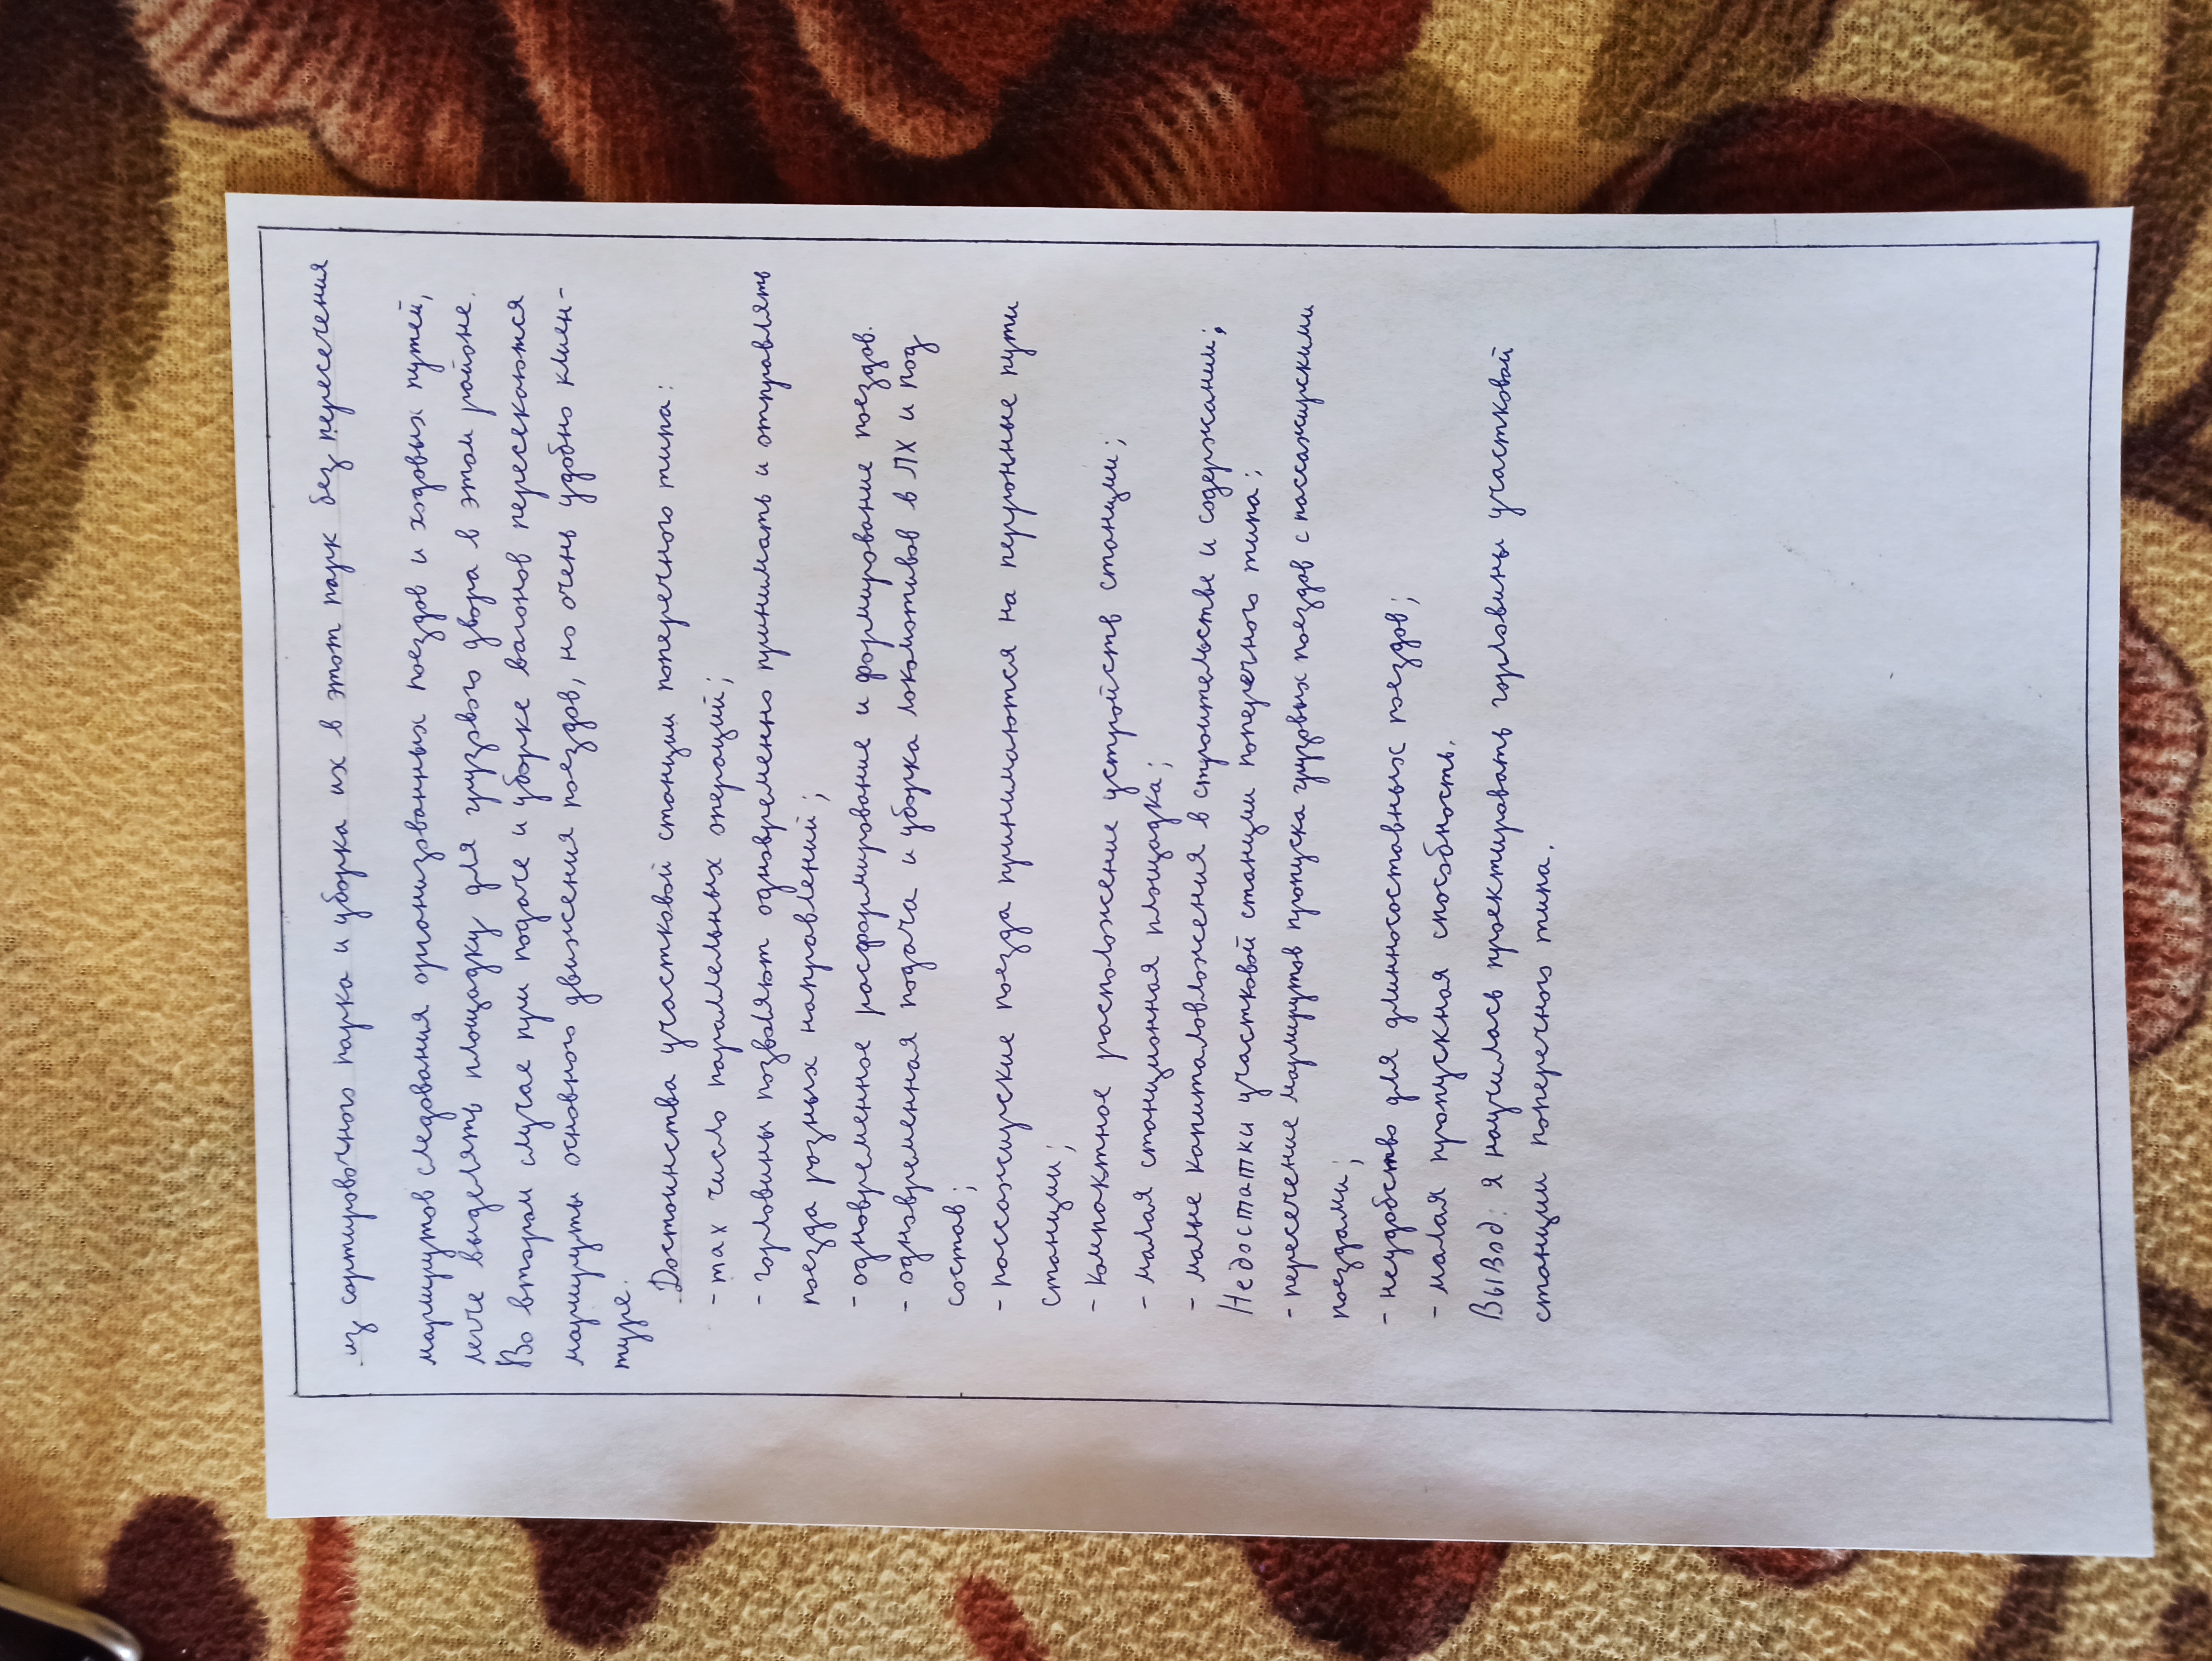 из сортировочного парка и уборка их в этот парк без пересечения
маршрутов следования организованных поездов и ходовых путей,
легче выделять площадку для грузового двора в этом районе.
Во втором случае при подаче и уборке вагонов пересекаются
маршруты основного движения поездов, но очень удобно клиен-
туре.
Достоинства участковой станции поперечного типа:
- max число параллельных операций;
- горловины позволяют одновременно принимать и отправлять
поезда разных направлений;
- одновременное расформирование и формирование поездов.
- одновременная подача и уборка локомотивов в ЛХ и под
состав;
- пассажирские поезда принимаются на перронные пути
станции;
- Компактное расположение устройств станции;
- малая станционная площадка;
- малые капиталовложения в строительстве и содержании;
Недостатки участковой станции поперечного типа:
- пересечение маршрутов пропуска грузовых поездов с пассажирскими
поездами;
- неудобство для длинносоставных поездов;
- малая пропускная способность.
Вывод: я научилась проектировать горловины участковой
станции поперечного типа.